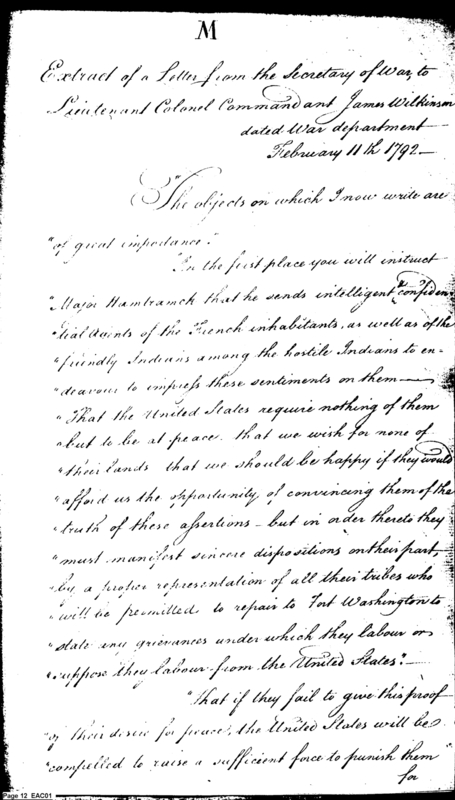 M
Extract of a Letter from the Secretary of War to
Lieutenant Colonel Commandant James Wilkinson
dated War department
February 11th 1792—
"The objects on which I now write are
"of great importance."
"In the first place you will instruct
"Major Hamtramck that he sends intelligent & confiden-
"tial Agents of the French inhabitants, as well as of the
"friendly Indians among the hostile Indians to en-
"deavour to impress these sentiments on them—
"That the United States require nothing of them
"but to be at peace. that we wish for none of
"their lands that we should be happy if they would
"afford us the opportunity of convincing them of the
"truth of these assertions – but in order thereto they
"must manifest sincere dispositions on their part,
"by a proper representation of all their tribes who
"will be permitted to repair to Fort Washington to
"state any grievances under which they labour or
"suppose they labour from the United States."—
"That if they fail to give this proof
"of their desire for peace, the United States will be
"compelled to raise a sufficient force to punish them
for
Page 12 EAC01